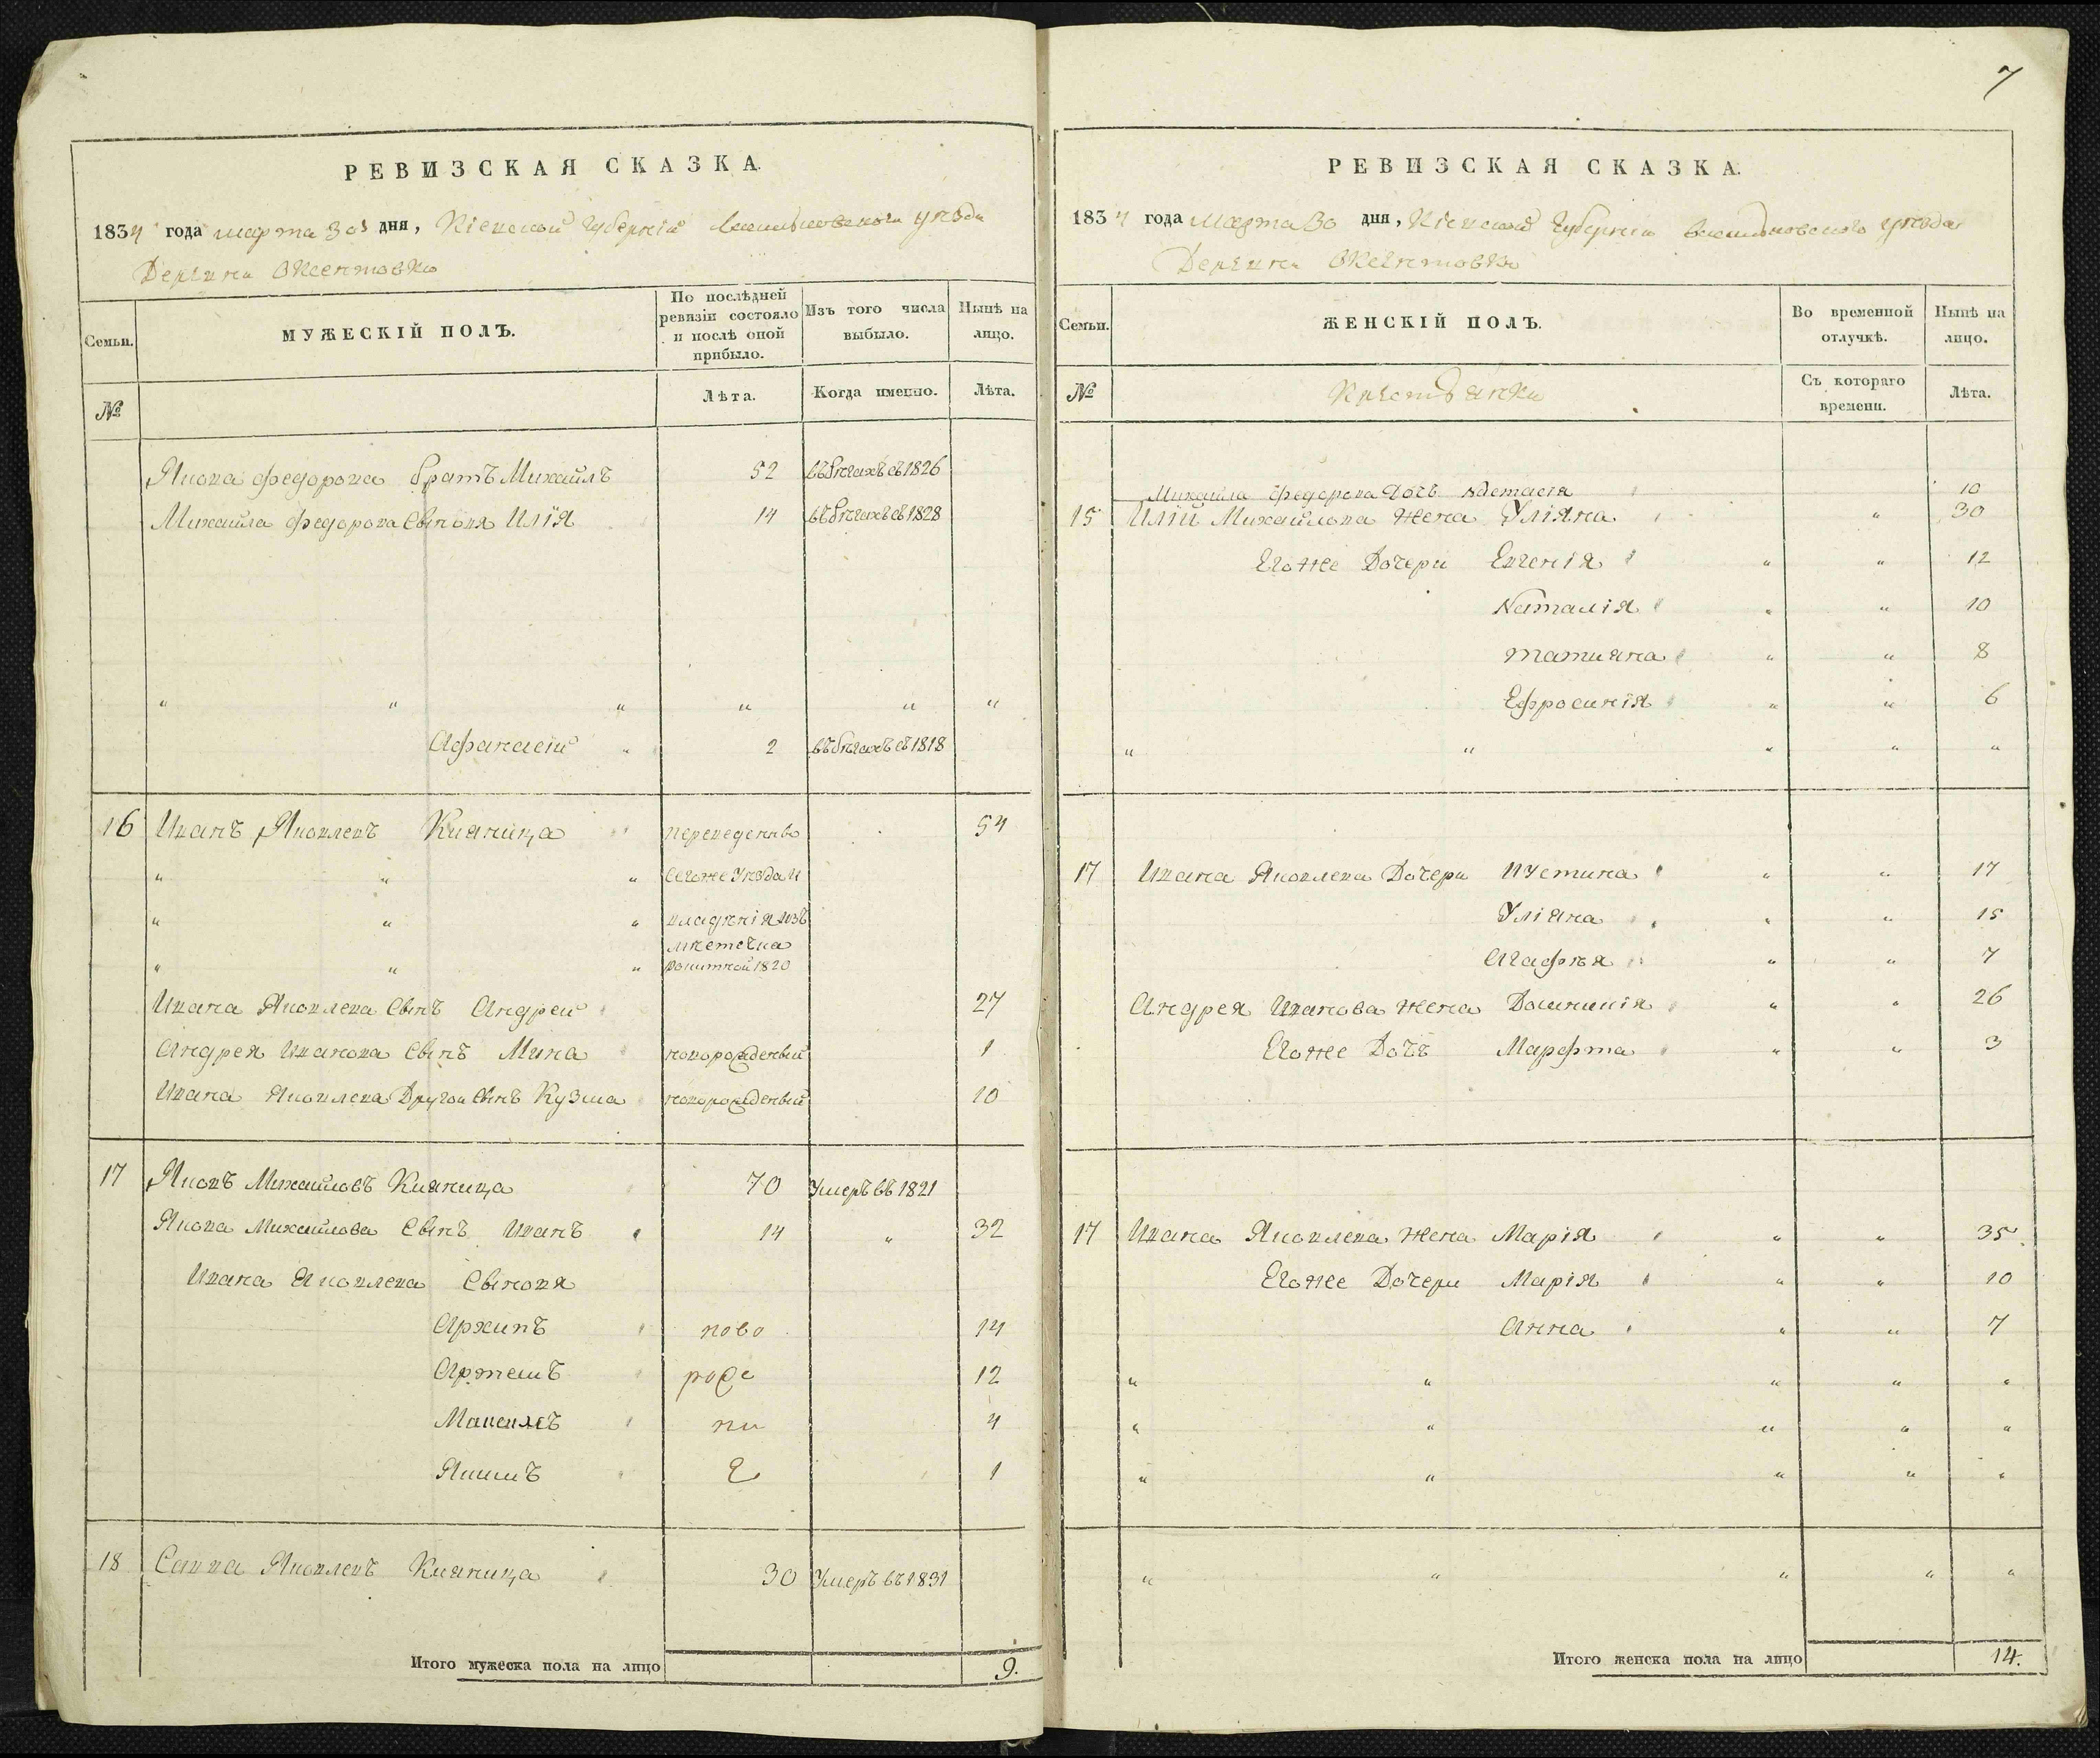 РЕВИЗСКАЯ СКАЗКА.
1834 года марта 30 дня, Кіевской Губерніи Васильковского уезда
Деревни Оксентовки
Семьи.
МУЖЕСКІЙ ПОЛЪ.
По послѣдней ревизіи состояло и послѣ оной прибыло.
Изъ того числа выбыло.
Нынѣ на лицо.
№
Лѣта.
Когда именно.
Лѣта.
Якова Федорова братъ Михайлъ 52 въ бѣгахъ съ 1826
Михайла Федорова Сыновя Илія 14 въ бѣгахъ съ 1828
" " " " " "
Афанасій " 2 въ бѣгахъ съ 1818
16 Иванъ Яковлевъ Кияница переведенъ 54
" " "
" " " владѣнія изъ
мѣстечка
" " " 1820
Ивана Яковлева Сынъ Андрей 27
Андрея Иванова Сынъ Мина новорожденый 1
Ивана Яковлева Другой Сынъ Кузма новорожденый 10
17 Яковъ Михайловъ Кияница 70 Умеръ въ 1821
Якова Михайлова Сынъ Иванъ 14 " 32
Ивана Яковлева Сыновя
Архипъ ново 14
Артемъ роже 12
Мапсимъ ни 4
Якимъ е 1
18 Савва Яковлевъ Кияница 30 Умеръ въ 1831
Итого мужеска пола на лицо 9.
7
РЕВИЗСКАЯ СКАЗКА.
1834 года Марта 30 дня, Кіевской Губерніи Васильковского уезда
Деревни Оксентовки
Семьи.
ЖЕНСКІЙ ПОЛЪ.
Во временной отлучкѣ.
Нынѣ на лицо.
№
Крестьянки
Съ котораго времени.
Лѣта.
Михайла Федорова Дочь Настасія 10
15 Илій Михайлова жена Уліяна " 30
Егоже Дочери Евгенія " " 12
Наталія " " 10
Татияна " " 8
Ефросинія " " 6
" " " " "
17 Ивана Яковлева Дочери Иустина " " 17
Уліяна " " 15
Агафѣя " " 7
Андрея Иванова жена Домникія " " 26
Егоже Дочь Марфта " " 3
17 Ивана Яковлева жена Марія " " 35
Егоже Дочери Марія " " 10
Анна " " 7
" " " " "
" " " " "
" " " " "
" " " " "
Итого женска пола на лицо 14.